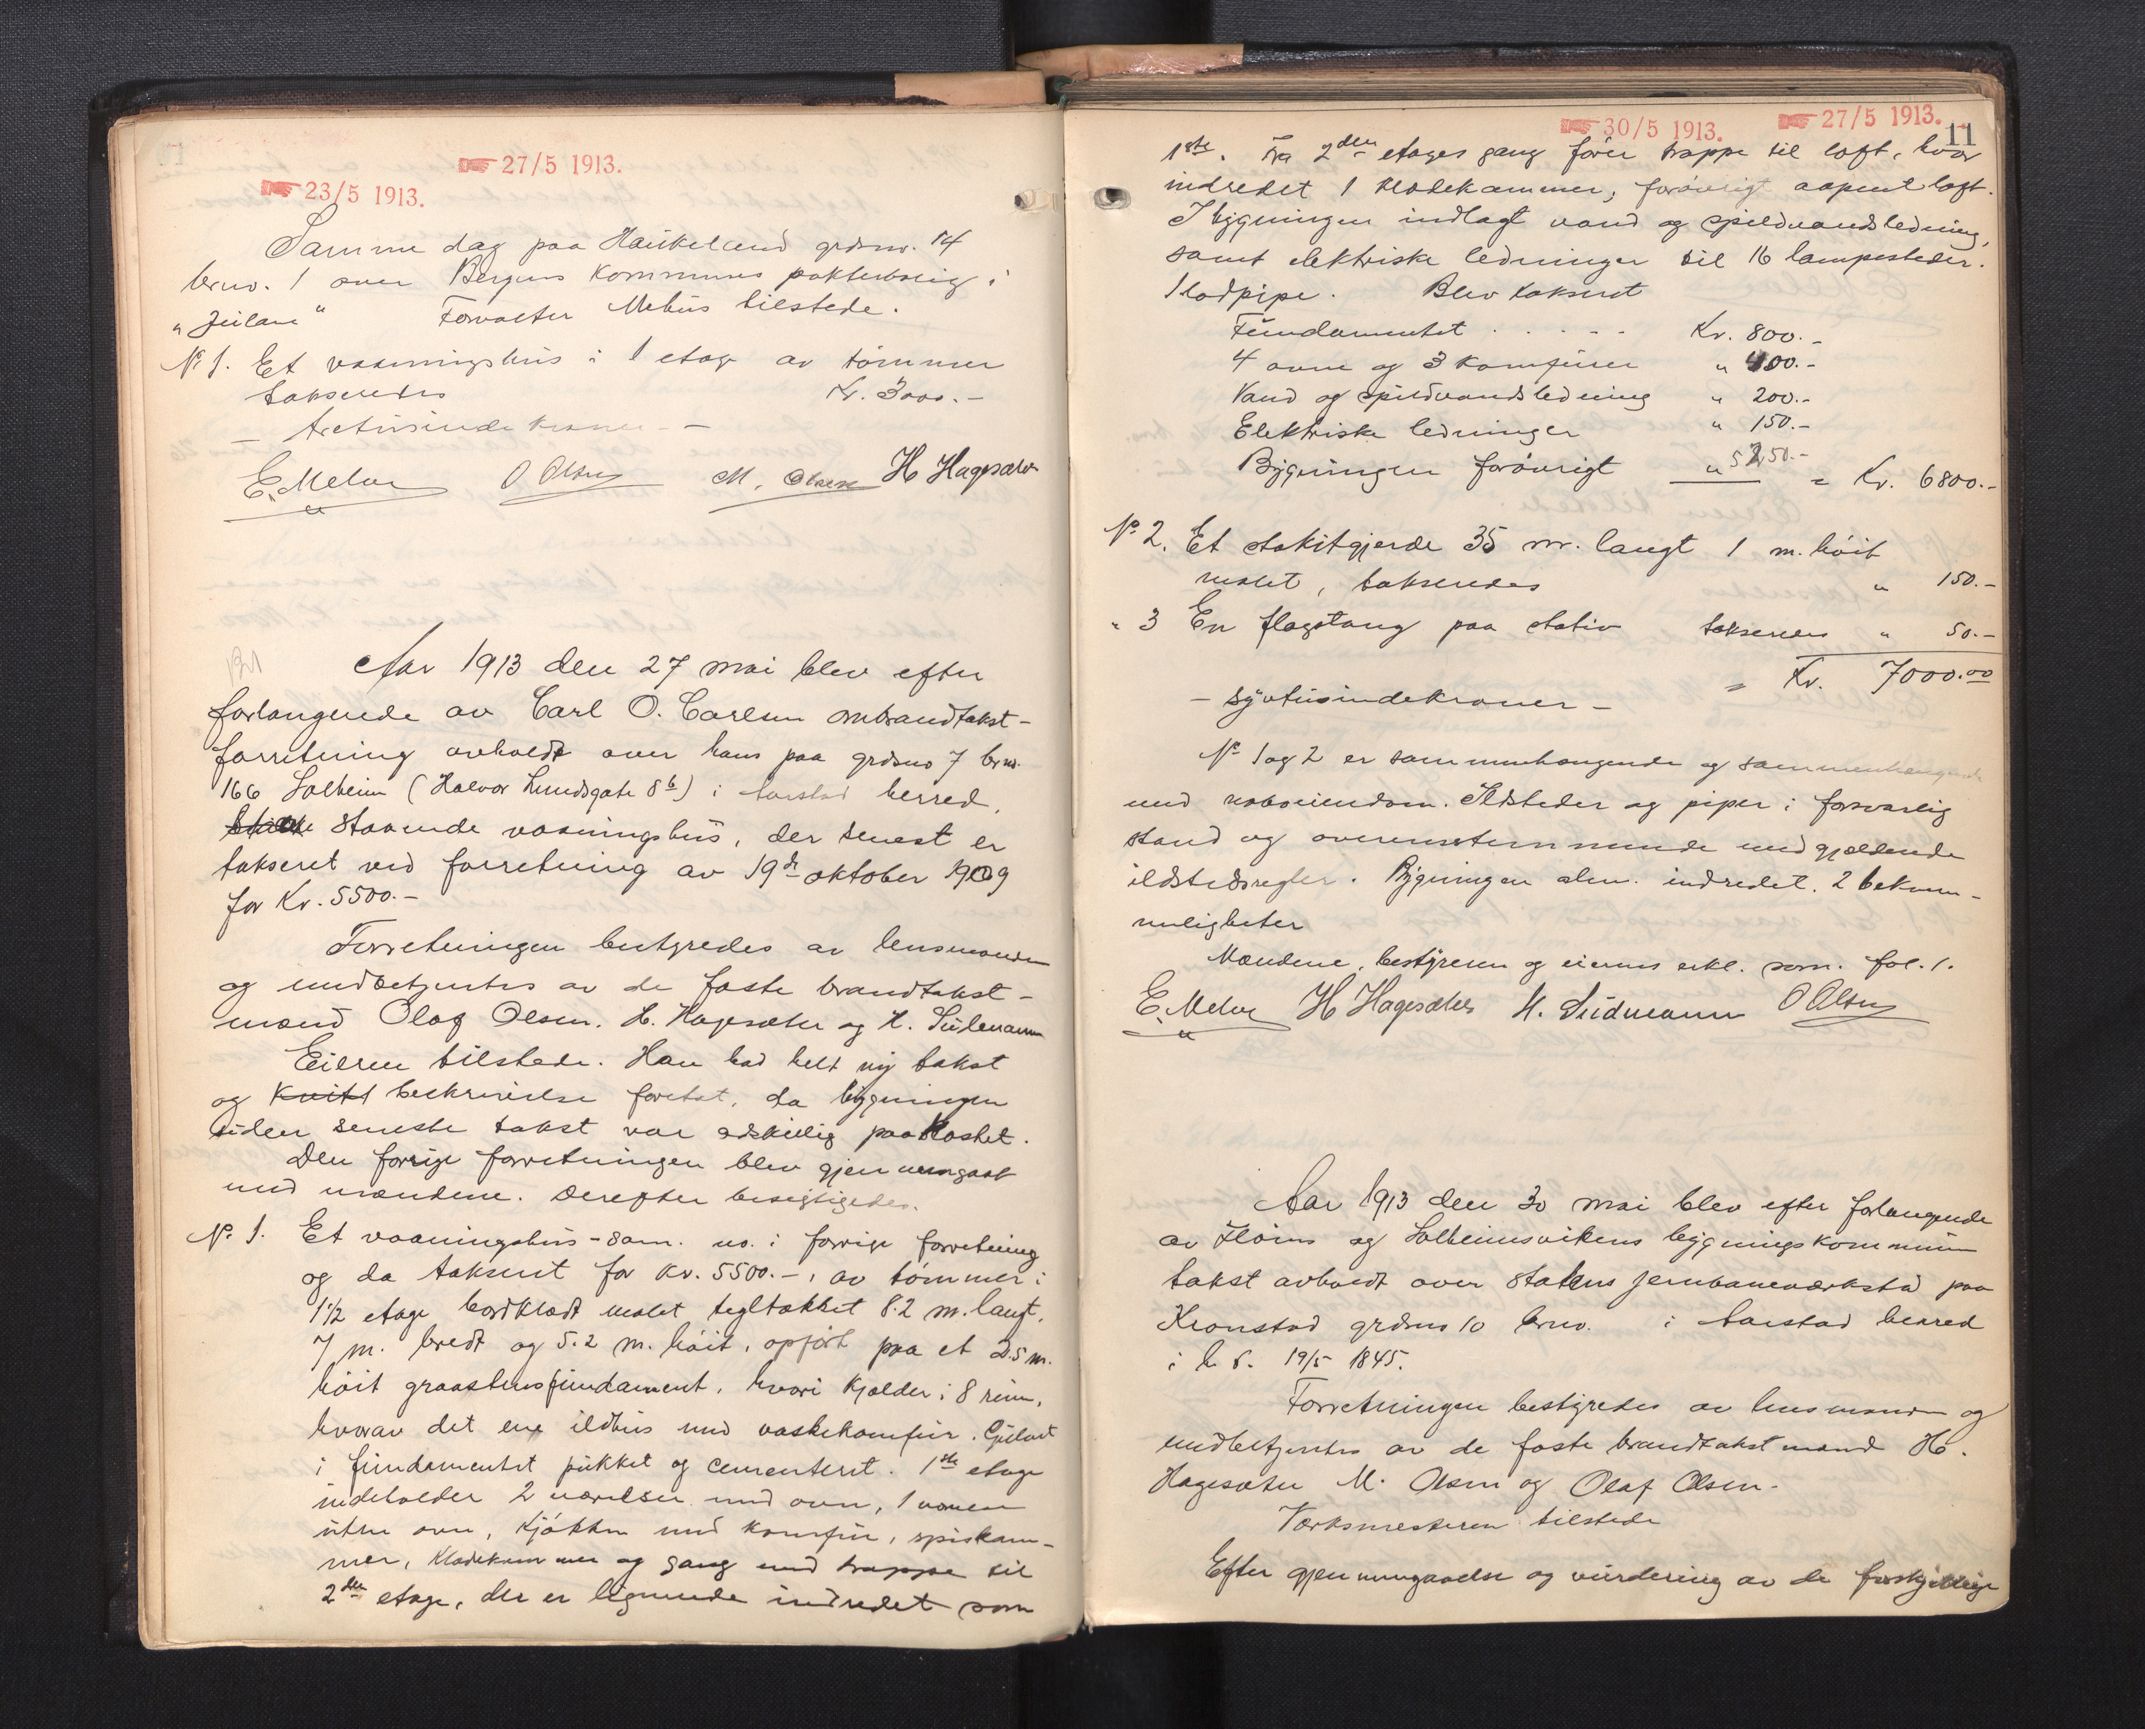 27/5 1913.
23/5 1913.
Samme dag paa Haukeland grdsnr. 14
brno. 1 over Bergens kommunes pakterbolig i
"                " Forvalter Mehus tilstede.
No 1. Et vaaningshus i 1 etage av tømmer
takseredes Kr. 3000.-
- Tretusinde kroner -
E. Melve O Olsen M. Olsen H Hagesæter
Aar 1913 den 27 mai blev efter
forlangende av Carl O. Carlsen ombrandtakst-
forretning avholdt over hans paa grdsno 7 brno.
166 Solheim (Halvor Lundsgate 8b) i Aarstad herred,
staaende vaaningshus, der senest er
takseret ved forretning av 19de oktober 1909
for Kr. 5500.-
Forretningen bestyredes av lensmanden
og medbetjentes av de faste brandtakst-
mænd Olaf Olsen, H. Hagesæter og H. Südmann
Eieren tilstede. Han bad helt ny takst
og beskrivelse foretat, da bygningen
siden seneste takst var adskillig paakostet.
Den forrige forretningen blev gjennemgaat
med mændene. Derefter besigtigedes.
No 1. Et vaaningshus - som no. 1 forrige forretning
og da takseret for Kr. 5500.-, av tømmer i
1 1/2 etage bordklædt malet tegltækket 8.2 m. langt,
7 m. bredt og 5.2 m. høit, opført paa et 2.5 m.
høit graastensfundament, hvori kjælder i 8 rum,
hvorav det ene ildhus med vaskekomfur. Gulvet
i fundamentet pukket og cementeret. 1ste etage
indeholder 2 værelser med ovn, 1 værelse
uten ovn, kjøkken med komfur, spiskam-
mer, klædekammer og gang med trappe til
2den etage, der er lignende indredet som
30/5 1913. 27/5 1913.
11
1ste. Fra 2den etages gang fører trappe til loft, hvor
indredet 1 klædekammer, forøvrigt aapent loft.
I bygningen indlagt vand og spildvandsledning,
samt elektriske ledninger til 16 lampesteder.
1 lodpipe. Blev takseret
Fundamentet . . . . . Kr. 800.-
4 ovne og 3 komfurer " 400.-
Vand og spildvandsledning " 200.-
Elektriske ledninger " 150.-
Bygningen forøvrigt " 5250.- = Kr. 6800.-
No 2. Et stakitgjerde 35 m. langt 1 m. høit
malet, takseredes " 150.-
" 3 En flagstang paa stativ takseredes " 50.-
= Kr. 7000.00
- syvtusindekroner -
No 1 og 2 er sammenhængende og sammenhængende
med naboeiendom. Ildsteder og piper i forsvarlig
stand og overensstemmende med gjældende
ildstedsregler. Bygningen alm. indredet. 2 bekvem-
meligheter
Mændene, bestyreren og eierens erkl. som. fol. 1.
E. Melve H Hagesæter H. Südmann O Olsen
Aar 1913 den 30 mai blev efter forlangende
av Fløens og Solheimsvikens bygningskommission
takst avholdt over Statens jernbaneværksted paa
Kronstad grdsno 10 brno. i Aarstad herred
i h. t. 19/5 1845.
Forretningen bestyredes av lensmanden og
medbetjentes av de faste brandtakstmænd H.
Hagesæter M. Olsen og Olaf Olsen.
Værksmesteren tilstede
Efter gjennemgaaelse og vurdering av de forskjellige